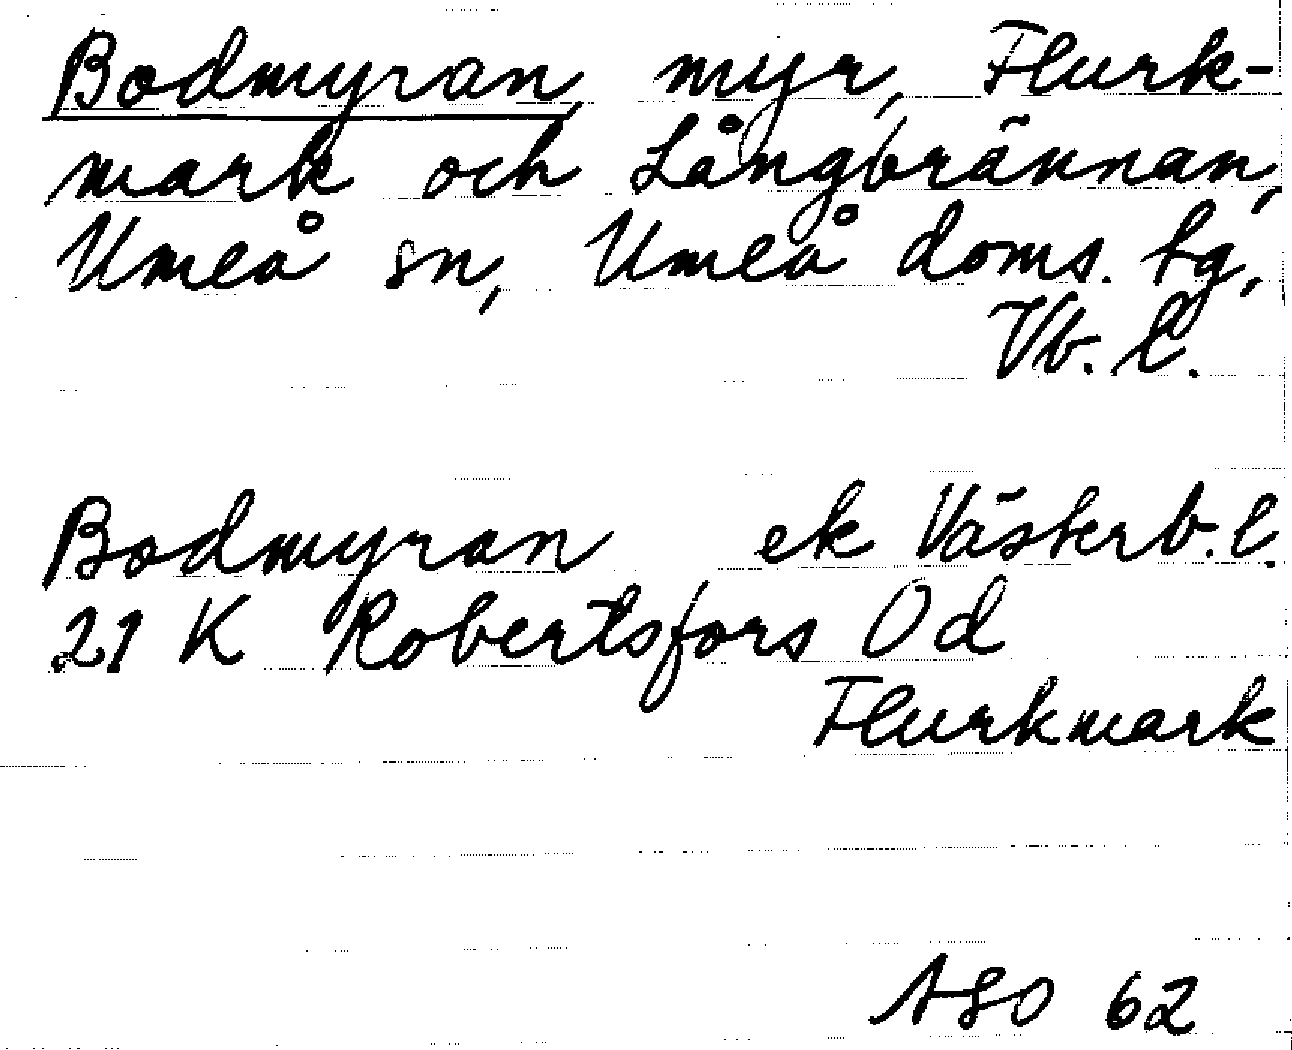 Bodmyran, myr, Flurk-
mark och Långbrännan,
Umeå sn, Umeå doms. tg,
Vb. l.
Bodmyran ek Västerb. l.
21 K Robertsfors 0 d
Flurkmark
ASO 62